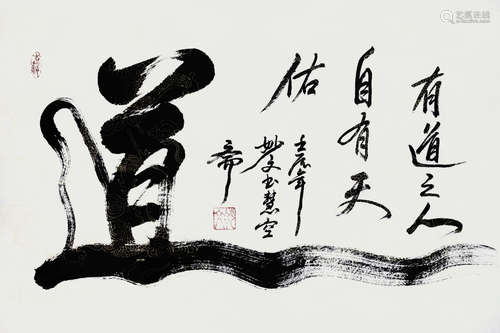 道
有道之人
自有天
佑
壬辰年
书慧空
斋